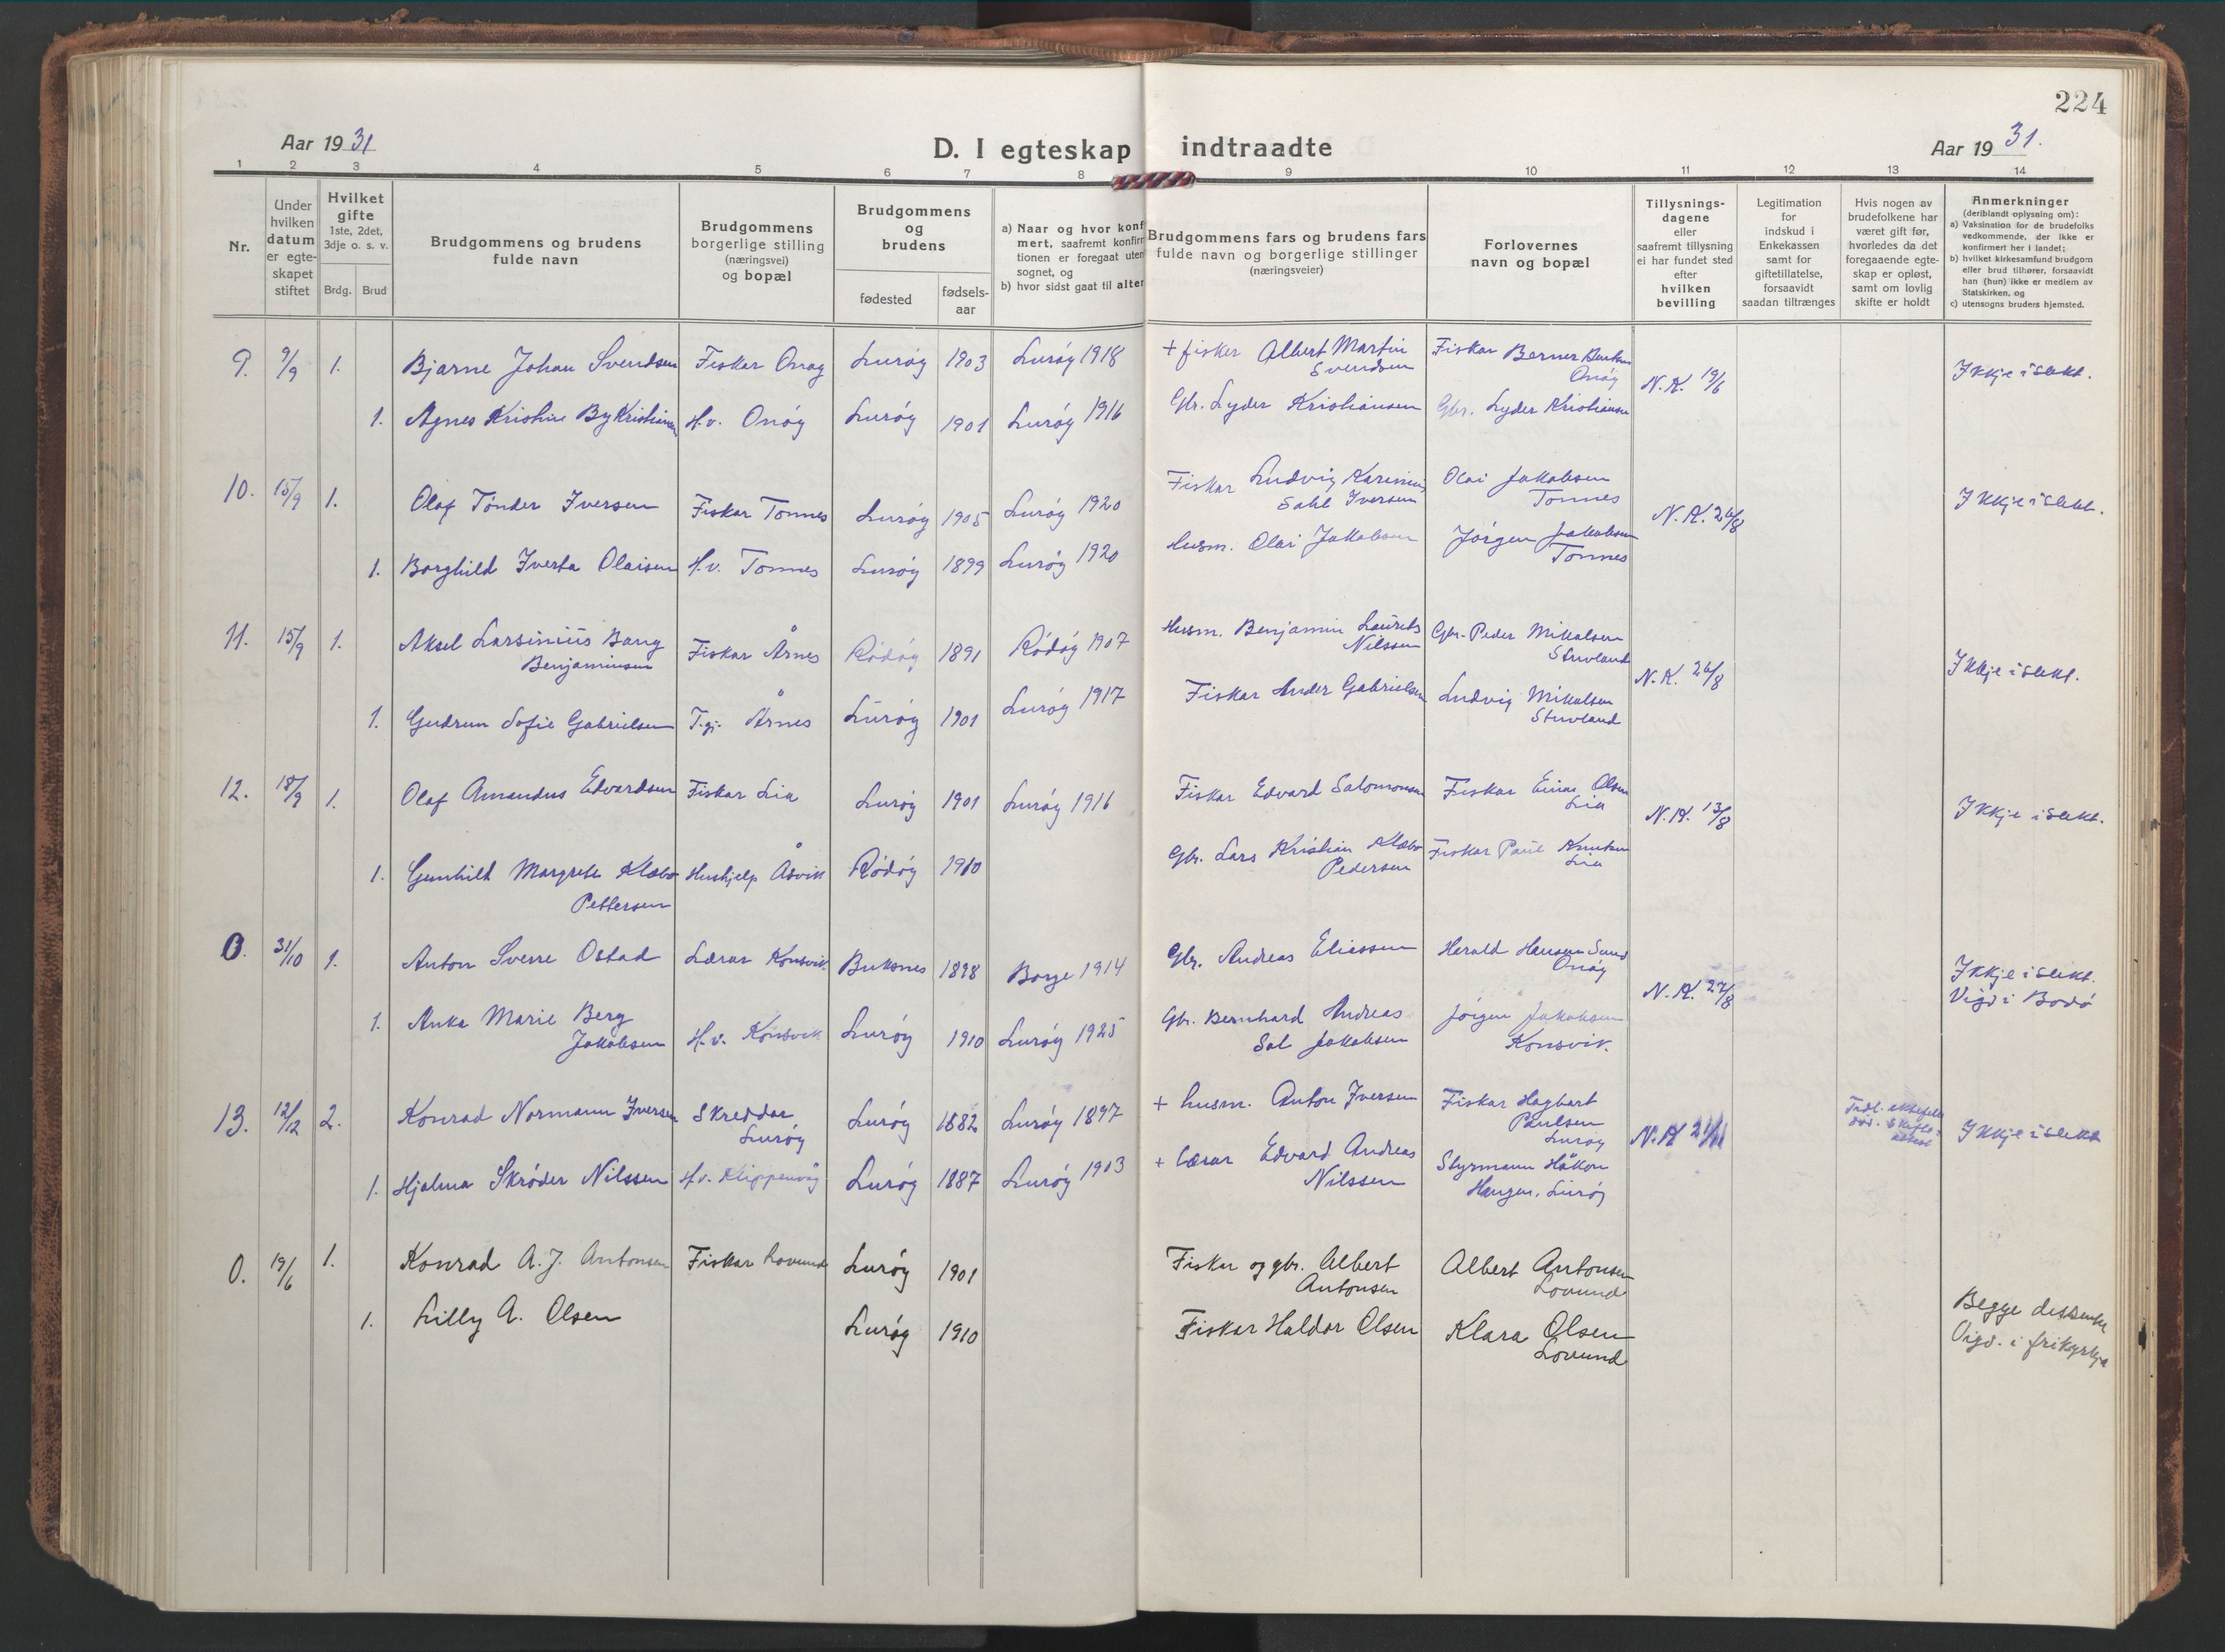 224
Aar 1931
D. I egteskap indtraadte
Aar 1931.
1 2 3 4 5 6 7 8 9 10 11 12 13 14
Nr.
Under
hvilken
datum
er egte-
skapet
stiftet
Hvilket
gifte
1ste, 2det,
3dje o. s. v.
Brdg. Brud
Brudgommens og brudens
fulde navn
Brudgommens
borgerlige stilling
(næringsvei)
og bopæl
Brudgommens
og
brudens
fødested
fødsels-
aar
a) Naar og hvor konf
mert, saafremt konfirm
tionen er foregaat uten
sognet, og
b) hvor sidst gaat til alter
Brudgommens fars og brudens fars
fulde navn og borgerlige stillinger
(næringsveier)
Forlovernes
navn og bopæl
Tillysnings-
dagene
eller
saafremt tillysning
ei har fundet sted
efter
hvilken
bevilling
Legitimation
for
indskud i
Enkekassen
samt for
giftetillatelse,
forsaavidt
saadan tiltrænges
Hvis nogen av
brudefolkene har
været gift før,
hvorledes da det
foregaaende egte-
skap er opløst,
samt om lovlig
skifte er holdt
Anmerkninger
(deriblandt oplysning om):
a) Vaksination for de brudefolks
vedkommende, der ikke er
konfirmert her i landet;
b) hvilket kirkesamfund brudgom
eller brud tilhører, forsaavidt
han (hun) ikke er medlem av
Statskirken, og
c) utensogns bruders hjemsted.
9. 9/9 1. Bjarne Johan Svendsen Fiskar Onøy Lurøy 1903 Lurøy 1918 + fisker Albert Martin Svendsen Fiskar Berner Onøy N.K. 19/6 Ikkje i slekt.
1. Agnes Kristine By Kristiansen H.v. Onøy Lurøy 1901 Lurøy 1916 Gbr. Lyder Kristiansen Gbr. Lyder Kristiansen
10. 15/9 1. Olaf Tønder Iversen Fiskar Tonnes Lurøy 1905 Lurøy 1920 Fiskar Ludvig Karinius Sahl Iversen Olai Jakobsen Tonnes N.K. 26/8 Ikkje i slekt.
1. Borghild Iverta Olaisen H.v. Tonnes Lurøy 1899 Lurøy 1920 Husm. Olai Jakobsen Jørgen Jakobsen Tonnes
11. 15/9 1. Aksel Larsinius Bang Benjaminsen Fiskar Årnes Rødøy 1891 Rødøy 1907 Husm. Benjamin Laurits Nilssen Gbr. Peder Mikalsen Stuvland N.K. 26/8 Ikkje i slekt.
1. Gudrun Sofie Gabrielsen T.gj. Årnes Lurøy 1901 Lurøy 1917 Fiskar Ander Gabrielsen Ludvig Mikalsen Stuvland
12. 18/9 1. Olaf Amandus Edvardsen Fiskar Lia Lurøy 1901 Lurøy 1916 Fiskar Edvard Salomonsen Fiskar Einar Olsen Lia N.K. 13/8 Ikkje i slekt.
1. Gunhilt Margrete Klæbo Pettersen Hushjelp Åsvik Rødøy 1910 Gbr. Lars Kristian Klæbo Pedersen Fiskar Paul Knutsen Lia
0. 31/10 1. Anton Sverre Ostad Lærar Konsvik Buksnes 1898 Borge 1914 Gbr. Andreas Eliassen Harald Hansen Sund Onøy N.K. 27/8 Ikkje i slekt. Vigd i Bodø
1. Anka Marie Berg Jakobsen H.v. Konsvik Lurøy 1910 Lurøy 1925 Gbr. Bernhard Andreas Sal Jakobsen Jørgen Jakobsen Konsvik.
13. 12/12 2. Konrad Normann Iversen Skreddar Lurøy Lurøy 1882 Lurøy 1897 + husm. Anton Iversen Fiskar Hagbart Paulsen Lurøy N.K. 21/11 Tidl. død. Ikkje i slekt
1. Hjalma Skrøder Nilssen H.v. Klippenvåg Lurøy 1887 Lurøy 1903 + lærar Edvard Andreas Nilssen Styrmann Håkon Haugen, Lurøy
0. 19/6 1. Konrad A. J. Antonsen Fiskar Lovund Lurøy 1901 Fiskar og gbr. Albert Antonsen Albert Antonsen Lovund Begge dissentar Vigd. i frikyrkja
1. Lilly A. Olsen Lurøy 1910 Fiskar Haldor Olsen Klara Olsen Lovund